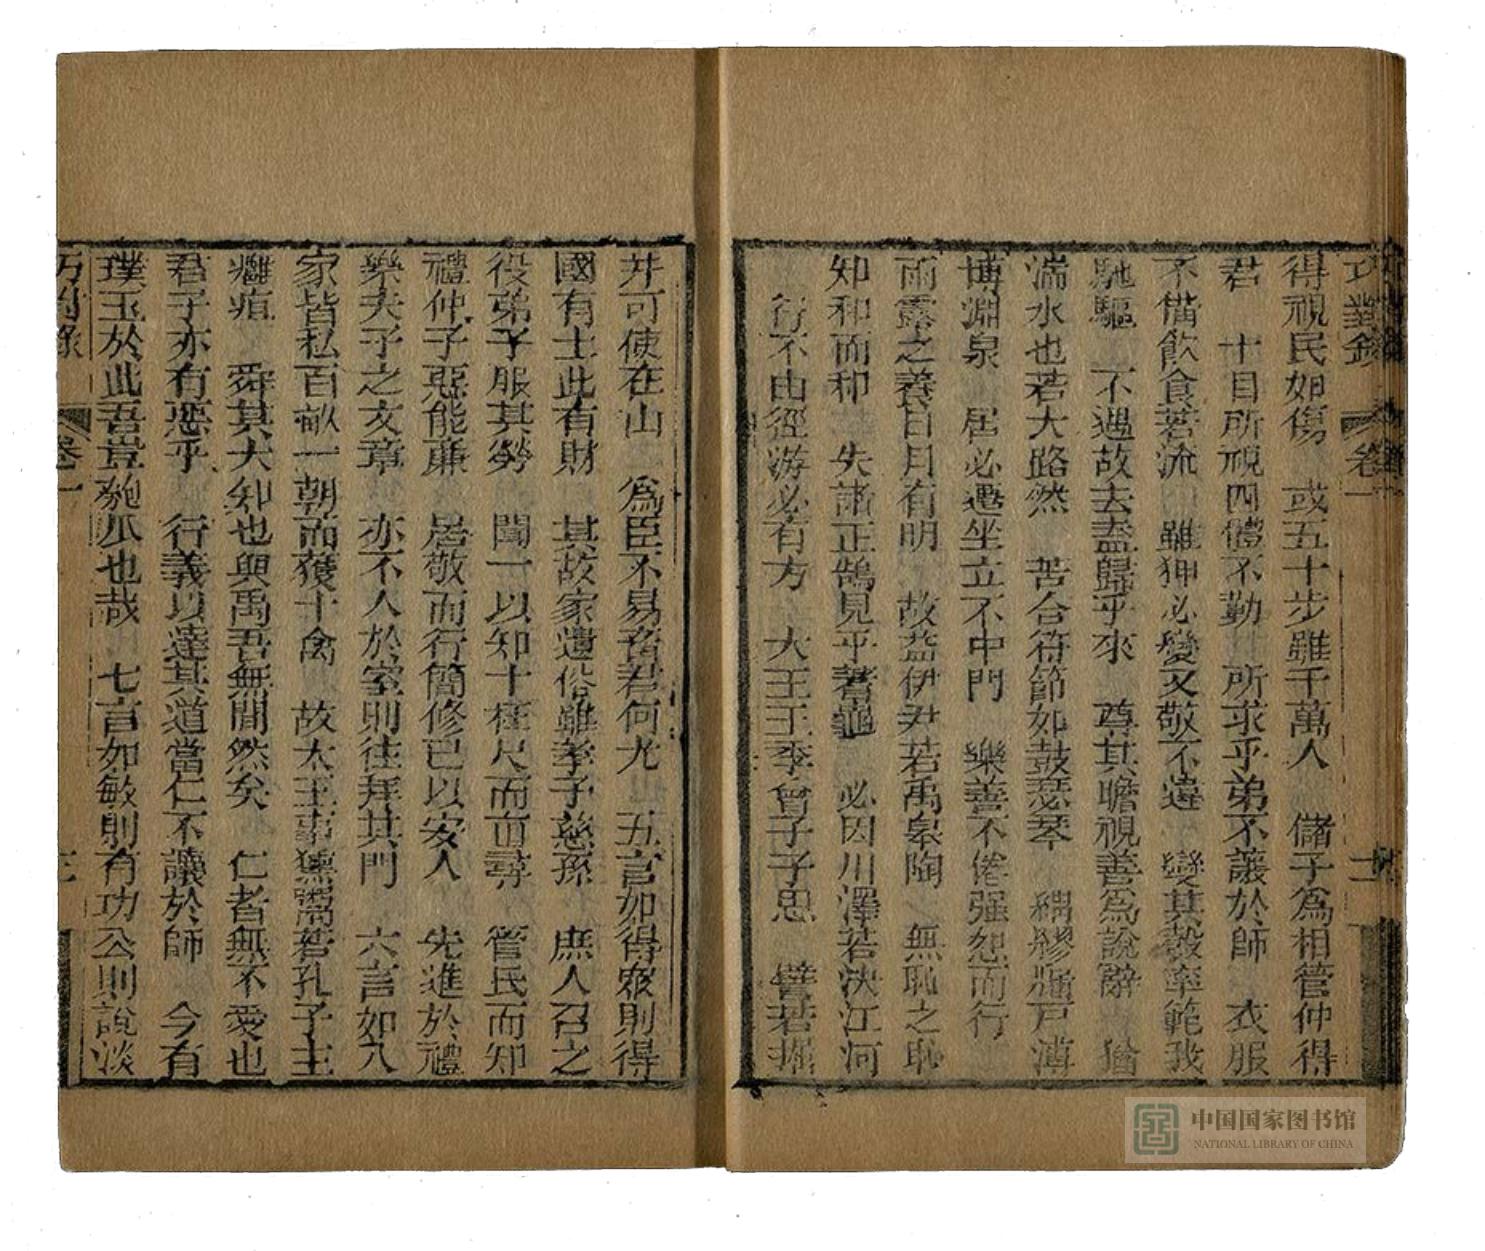 巧對錄 卷一 十二
得視民如傷 或五十步雖千萬人 儲子爲相管仲得
君 十目所視四體不勤 所求乎弟不讓於師 衣服
不備飲食若流 雖狎必變又敬不違 變其彀率範我
馳驅 不遇故去盍歸乎來 尊其瞻視善爲說辭 猶
湍水也若大路然 苦合符節如鼓瑟琴 綢繆牖戶溥
博淵泉 居必遷坐立不中門 樂善不倦强恕而行
雨露之養日月有明 故益伊尹若禹皋陶 無恥之恥
知和而和 失諸正鵠見乎蓍龜 必因川澤若決江河
行不由徑游必有方 大王王季曾子子思 譬若掘
井可使在山 爲臣不易畜君何尤 五言如得衆則得
國有土此有財 其故家遺俗雖孝子慈孫 庶人召之
役弟子服其勞 聞一以知十枉尺而直尋 管氏而知
禮仲子惡能廉 居敬而行簡修已以安人 先進於禮
樂夫子之文章 亦不入於室則往拜其門 六言如八
家皆私百畝一朝而獲十禽 故太王事獯鬻若孔子主
癰疽 舜其大知也與禹吾無間然矣 仁者無不愛也
君子亦有惡乎 行義以達其道當仁不讓於師 今有
璞玉於此吾豈匏瓜也哉 七言如敏則有功公則說淡
巧對錄 卷一
中国国家图书馆
NATIONAL LIBRARY OF CHINA